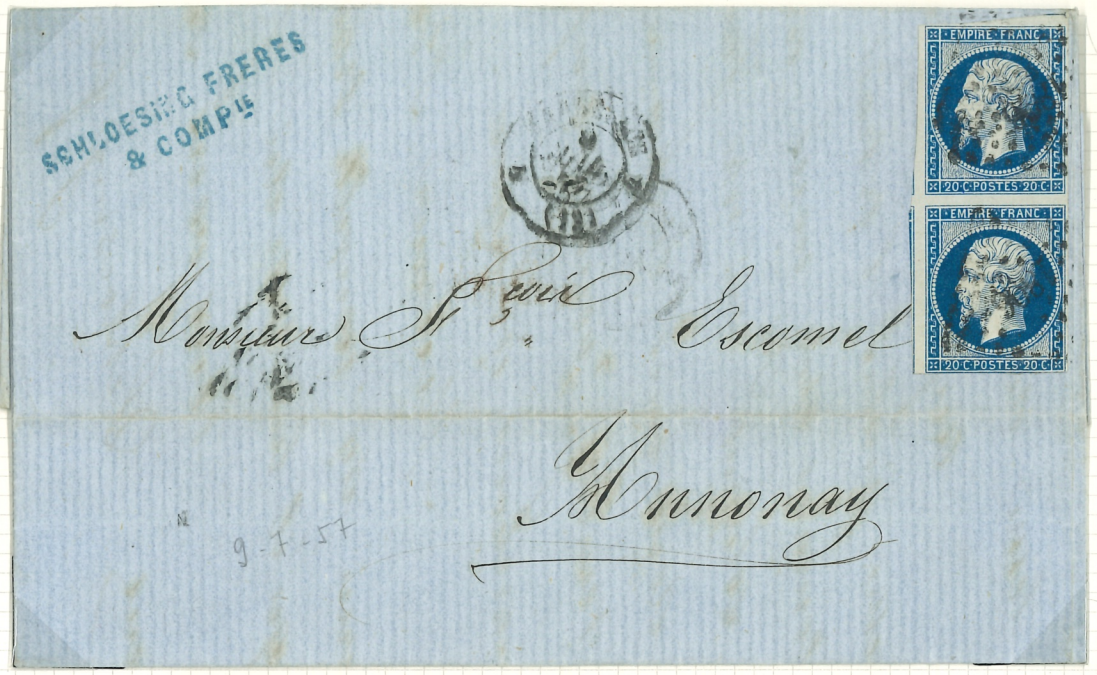 SCHLOESING FRERES
& COMPIE
EMPIRE FRANC
20·C·POSTES·20·C·
EMPIRE FRANC
20·C·POSTES·20·C·
Monsieur Escomel
Annonay
9-7-57